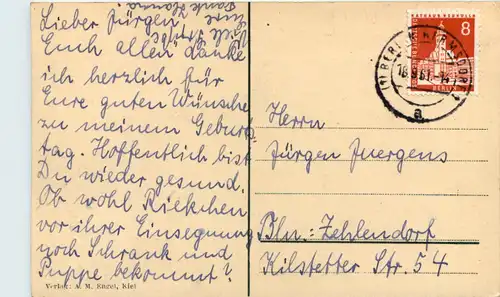 Lieber Jürgen!
Euch allen danke
ich herzlich für
Eure guten Wünsche
zu meinem Geburts-
tag. Hoffentlich bist
Du wieder gesund.
Ob wohl Riekchen
vor ihrer Einsegnung
noch Schrank und
Puppe bekommt?
Viele
Eure
Tante
Verlag: A. M. Engel, Kiel
RATHAUS NEUKÖLLN
8
DEUTSCHE BUNDESPOST
BERLIN
BERLIN-HERMSDORF
a
Herrn
Jürgen Juergens
Bln.-Zehlendorf
Kilstetter Str. 54